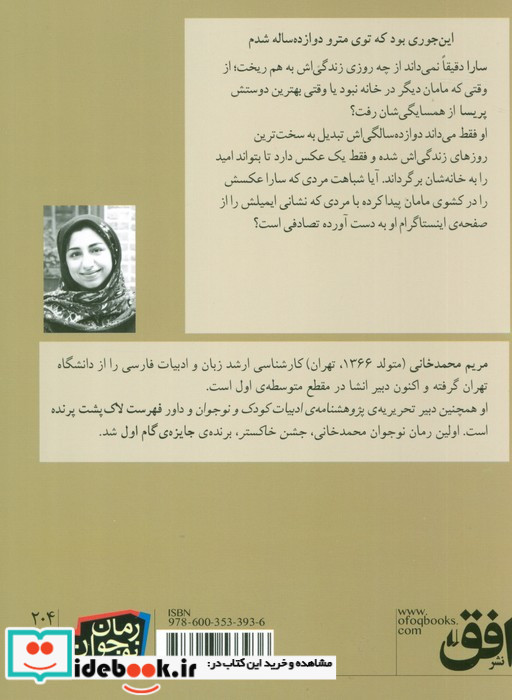 این‌جوری بود که توی مترو دوازده‌ساله شدم
سارا دقیقاً نمی‌داند از چه روزی زندگی‌اش به هم ریخت؛ از
وقتی که مامان دیگر در خانه نبود یا وقتی بهترین دوستش
پریسا از همسایگی‌شان رفت؟
او فقط می‌داند دوازده‌سالگی‌اش تبدیل به سخت‌ترین
روزهای زندگی‌اش شده و فقط یک عکس دارد تا بتواند امید
را به خانه‌شان برگرداند. آیا شباهت مردی که سارا عکسش
را در کشوی مامان پیدا کرده با مردی که نشانی ایمیلش را از
صفحه‌ی اینستاگرام او به دست آورده تصادفی است؟
مریم محمدخانی (متولد ۱۳۶۶، تهران) کارشناسی ارشد زبان و ادبیات فارسی را از دانشگاه
تهران گرفته و اکنون دبیر انشا در مقطع متوسطه‌ی اول است.
او همچنین دبیر تحریریه‌ی پژوهشنامه‌ی ادبیات کودک و نوجوان و داور فهرست لاک‌پشت پرنده
است. اولین رمان نوجوان محمدخانی، جشن خاکستر، برنده‌ی جایزه‌ی گام اول شد.
۲۰۴
رمان
نوجوان
ISBN
978-600-353-393-6
www.
ofoqbooks.
com
نشر افق
مشاهده و خرید این کتاب در:
idebook.ir